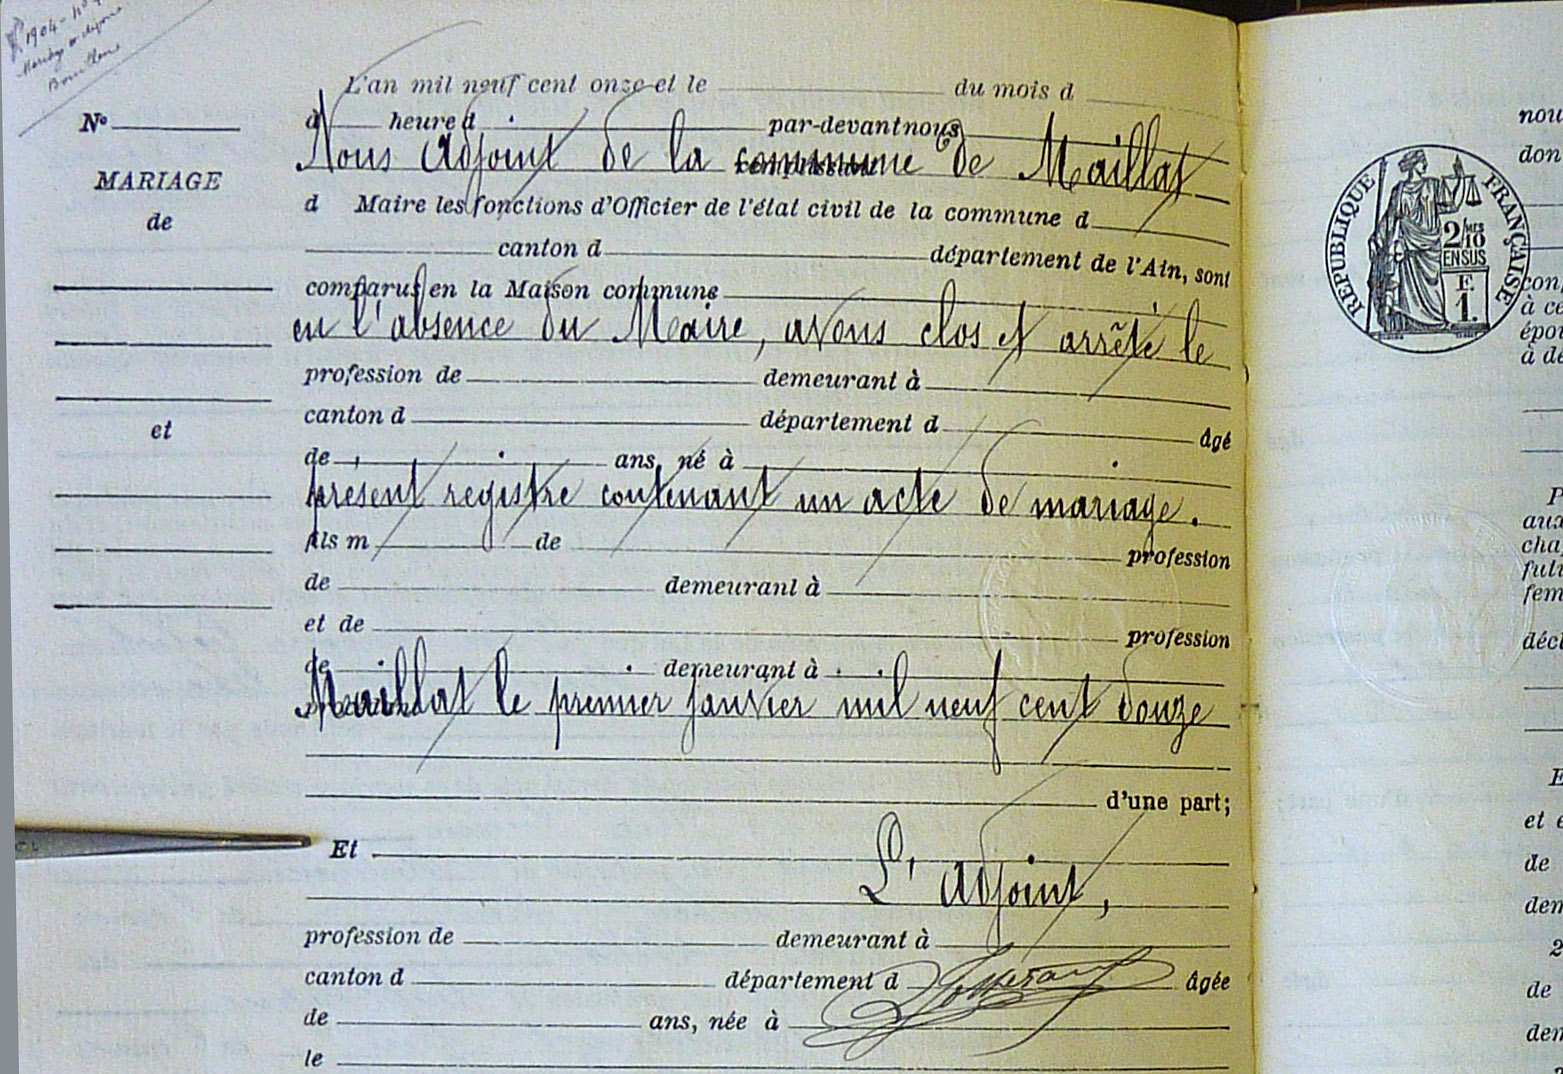 1904 - N°
L'an mil neuf cent onze et le du mois d
N° à heure d par-devant nous
Nous Adjoint de la commune de Maillat
MARIAGE
d Maire les fonctions d'Officier de l'état civil de la commune d
de
canton d département de l'Ain, sont
comparus en la Maison commune
en l'absence du Maire, avons clos et arrêté le
profession de demeurant à
canton d département d âgé
et
de ans, né à
présent registre contenant un acte de mariage.
fils m de profession
de demeurant à
et de profession
de demeurant à
Maillat le premier janvier mil neuf cent douze
d'une part;
Et
L'Adjoint,
profession de demeurant à
canton d département d âgée
de ans, née à
le
RÉPUBLIQUE FRANÇAISE
2/10 MES
EN SUS
F.
1.
nou
don
con
à ce
épou
à de
P
aux
cha
futu
fem
décl
E
et e
de
dem
2
de
dem